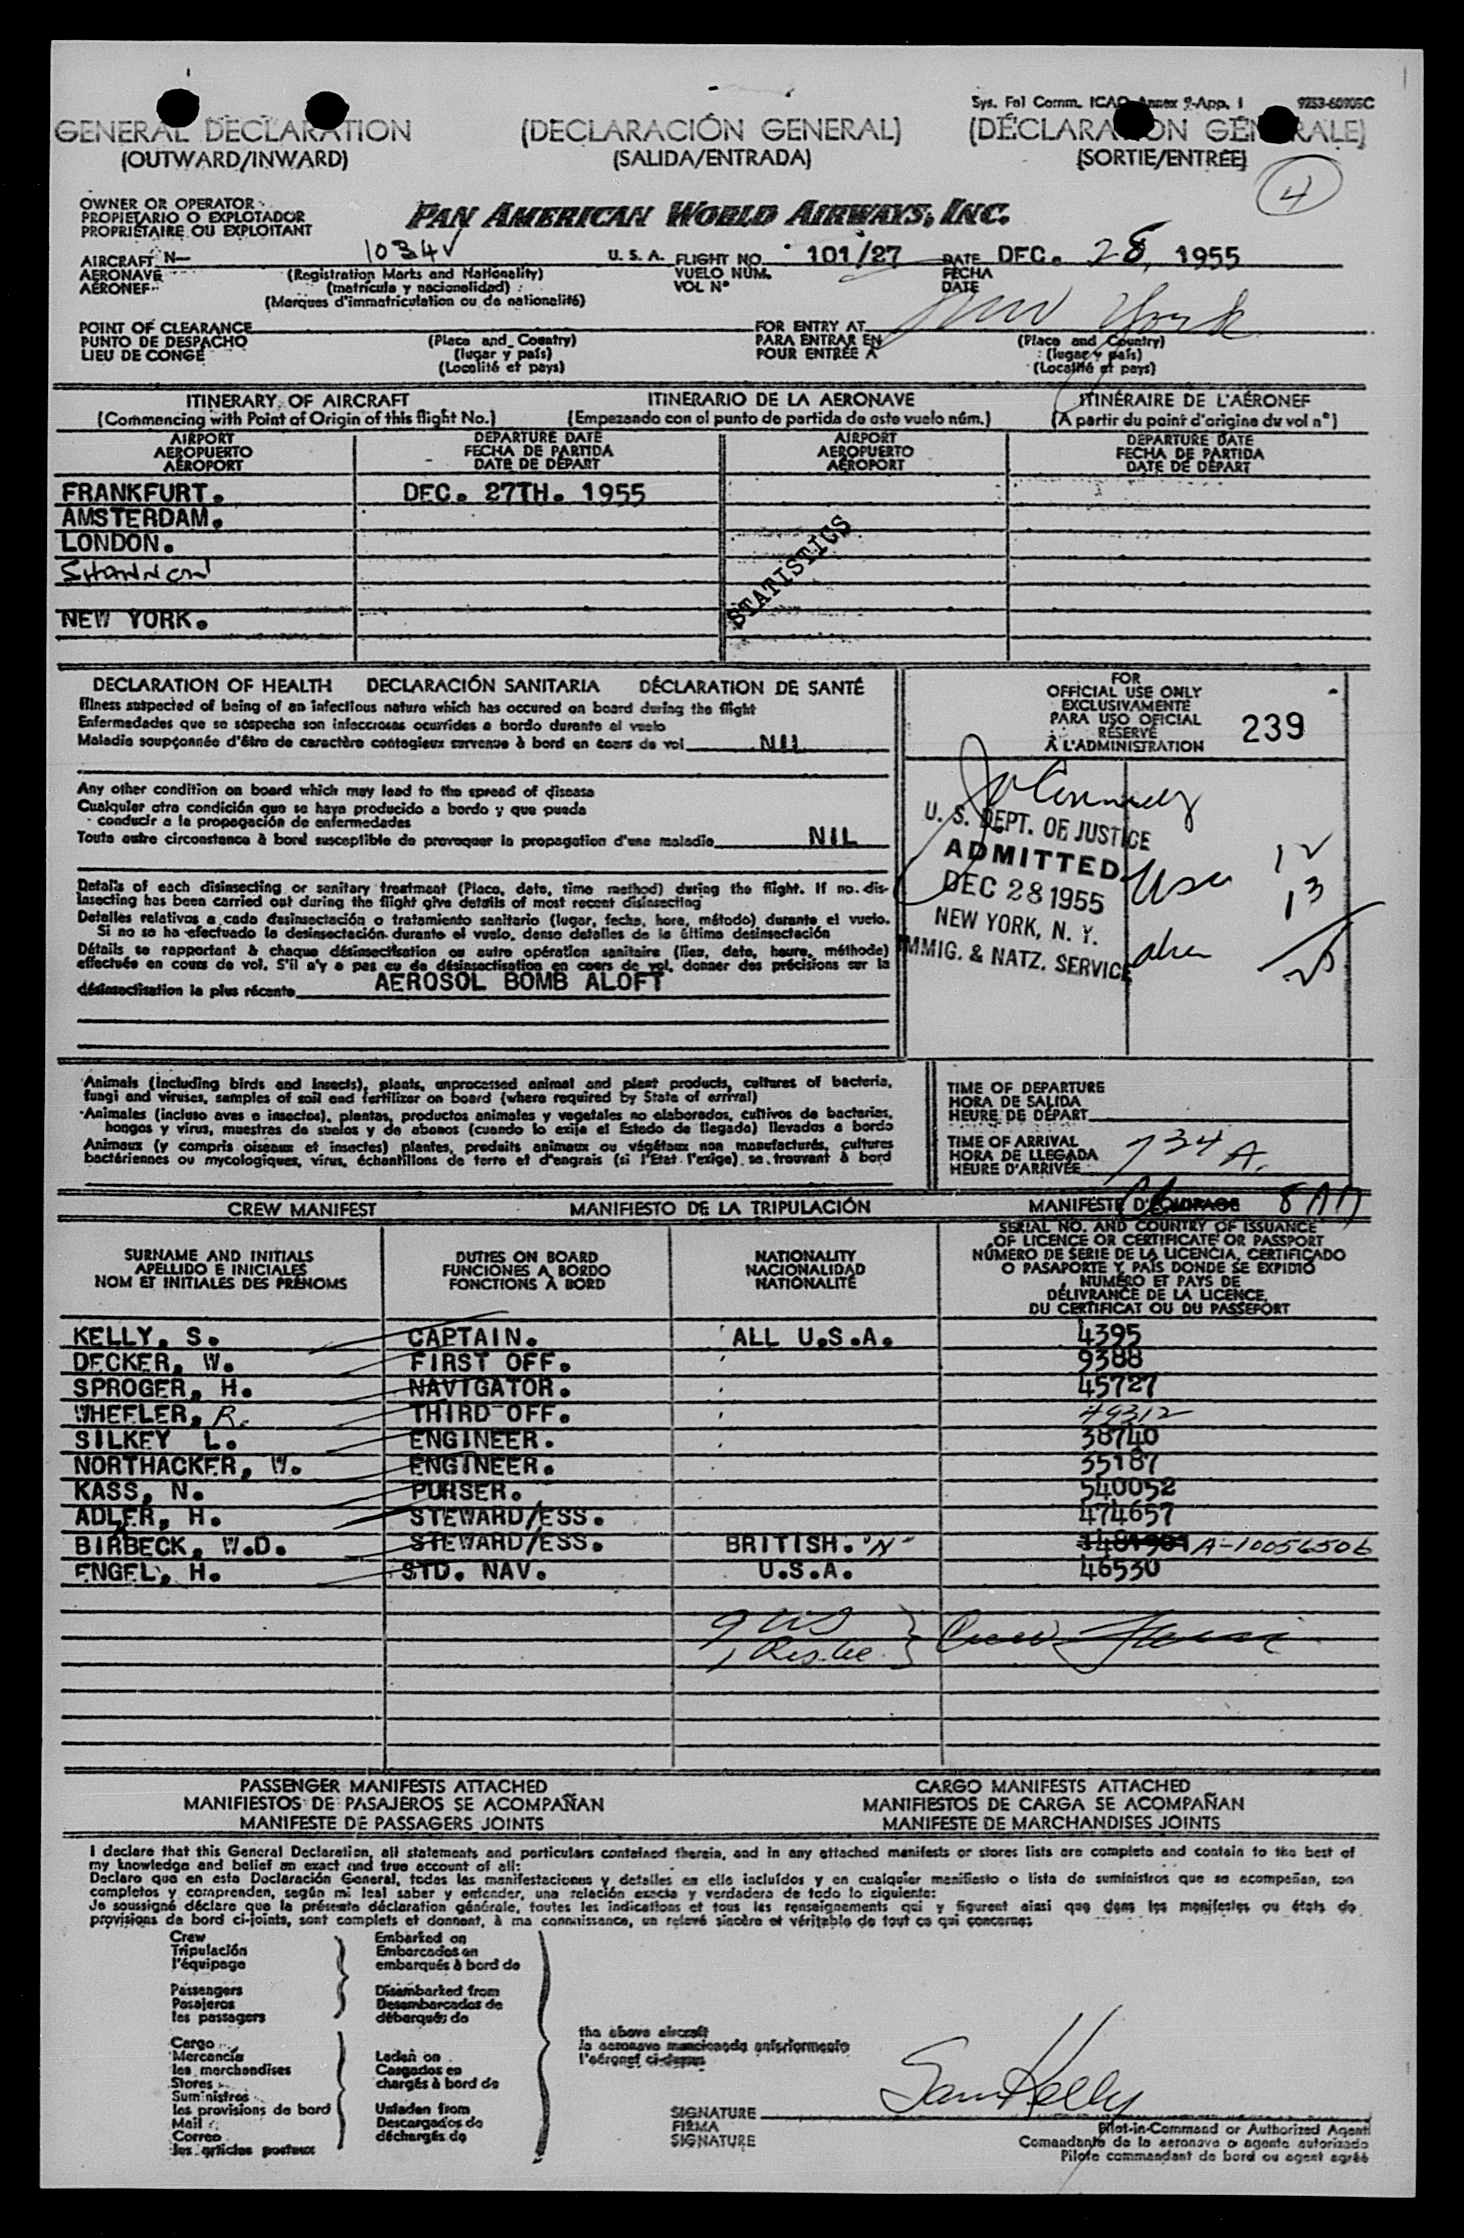 Sys. Fal Comm. ICAO Annex 9-App. 1 9253-60905C
GENERAL DECLARATION (DECLARACIÓN GENERAL) (DÉCLARATION GÉNÉRALE)
(OUTWARD/INWARD) (SALIDA/ENTRADA) (SORTIE/ENTRÉE)
4
OWNER OR OPERATOR
PROPIETARIO O EXPLOTADOR
PROPRIÉTAIRE OU EXPLOITANT
PAN AMERICAN WORLD AIRWAYS, INC.
AIRCRAFT N— 1034V U. S. A. FLIGHT NO. 101/27 DATE DEC. 28, 1955
AERONAVE (Registration Marks and Nationality) VUELO NÚM. FECHA
AÉRONEF (matrícula y nacionalidad) VOL Nº DATE
(Marques d'immatriculation ou de nationalité)
POINT OF CLEARANCE FOR ENTRY AT New York
PUNTO DE DESPACHO (Place and Country) PARA ENTRAR EN (Place and Country)
LIEU DE CONGÉ (lugar y país) POUR ENTRÉE À (lugar y país)
(Localité et pays) (Localité et pays)
ITINERARY OF AIRCRAFT ITINERARIO DE LA AERONAVE ITINÉRAIRE DE L'AÉRONEF
(Commencing with Point of Origin of this flight No.) (Empezando con el punto de partida de este vuelo núm.) (A partir du point d'origine du vol nº)
AIRPORT DEPARTURE DATE AIRPORT DEPARTURE DATE
AEROPUERTO FECHA DE PARTIDA AEROPUERTO FECHA DE PARTIDA
AÉROPORT DATE DE DÉPART AÉROPORT DATE DE DÉPART
FRANKFURT. DEC. 27TH. 1955
AMSTERDAM.
LONDON.
SHANNON
NEW YORK.
STATISTICS
DECLARATION OF HEALTH DECLARACIÓN SANITARIA DÉCLARATION DE SANTÉ
Illness suspected of being of an infectious nature which has occured on board during the flight
Enfermedades que se sospecha son infecciosas ocurridas a bordo durante el vuelo
Maladie soupçonnée d'être de caractère contagieux survenue à bord en cours de vol NIL
Any other condition on board which may lead to the spread of disease
Cualquier otra condición que se haya producido a bordo y que pueda
conducir a la propagación de enfermedades
Toute autre circonstance à bord susceptible de provoquer la propagation d'une maladie NIL
Details of each disinsecting or sanitary treatment (Place, date, time method) during the flight. If no dis-
insecting has been carried out during the flight give details of most recent disinsecting
Detalles relativos a cada desinsectación o tratamiento sanitario (lugar, fecha, hora, método) durante el vuelo.
Si no se ha efectuado la desinsectación durante el vuelo, dense detalles de la última desinsectación
Détails se rapportant à chaque désinsectisation ou autre opération sanitaire (lieu, date, heure, méthode)
effectuée en cours de vol. S'il n'y a pas eu de désinsectisation en cours de vol, donner des précisions sur la
désinsectisation la plus récente AEROSOL BOMB ALOFT
FOR
OFFICIAL USE ONLY
EXCLUSIVAMENTE
PARA USO OFICIAL
RESERVÉ
À L'ADMINISTRATION
239
U. S. DEPT. OF JUSTICE
ADMITTED
DEC 28 1955
NEW YORK, N. Y.
IMMIG. & NATZ. SERVICE
Usc 12
13
25
Animals (including birds and insects), plants, unprocessed animal and plant products, cultures of bacteria,
fungi and viruses, samples of soil and fertilizer on board (where required by State of arrival)
Animales (incluso aves e insectos), plantas, productos animales y vegetales no elaborados, cultivos de bacterias,
hongos y virus, muestras de suelos y de abonos (cuando lo exija el Estado de llegada) llevados a bordo
Animaux (y compris oiseaux et insectes) plantes, produits animaux ou végétaux non manufacturés, cultures
bactériennes ou mycologiques, virus, échantillons de terre et d'engrais (si l'Etat l'exige) se trouvant à bord
TIME OF DEPARTURE
HORA DE SALIDA
HEURE DE DÉPART
TIME OF ARRIVAL
HORA DE LLEGADA
HEURE D'ARRIVÉE 734 A.
CREW MANIFEST MANIFIESTO DE LA TRIPULACIÓN MANIFESTE D'ÉQUIPAGE
SURNAME AND INITIALS
APELLIDO E INICIALES
NOM ET INITIALES DES PRÉNOMS
DUTIES ON BOARD
FUNCIONES A BORDO
FONCTIONS À BORD
NATIONALITY
NACIONALIDAD
NATIONALITÉ
SERIAL NO. AND COUNTRY OF ISSUANCE
OF LICENCE OR CERTIFICATE OR PASSPORT
NÚMERO DE SERIE DE LA LICENCIA, CERTIFICADO
O PASAPORTE Y PAÍS DONDE SE EXPIDIÓ
NUMÉRO ET PAYS DE
DÉLIVRANCE DE LA LICENCE,
DU CERTIFICAT OU DU PASSEPORT
KELLY, S. CAPTAIN. ALL U.S.A. 4395
DECKER, W. FIRST OFF. 9388
SPROGER, H. NAVIGATOR. 45727
WHEELER, R. THIRD OFF. 49312
SILKEY L. ENGINEER. 38740
NORTHACKER, W. ENGINEER. 35187
KASS, N. PURSER. 540052
ADLER, H. STEWARD/ESS. 474657
BIRBECK, W.D. STEWARD/ESS. BRITISH. "N" A-10056506
ENGEL, H. STD. NAV. U.S.A. 46530
9 US
1 Res.
PASSENGER MANIFESTS ATTACHED CARGO MANIFESTS ATTACHED
MANIFIESTOS DE PASAJEROS SE ACOMPAÑAN MANIFIESTOS DE CARGA SE ACOMPAÑAN
MANIFESTE DE PASSAGERS JOINTS MANIFESTE DE MARCHANDISES JOINTS
I declare that this General Declaration, all statements and particulars contained therein, and in any attached manifests or stores lists are complete and contain to the best of
my knowledge and belief an exact and true account of all:
Declaro que en esta Declaración General, todas las manifestaciones y detalles en ella incluídos y en cualquier manifiesto o lista de suministros que se acompañan, son
completos y comprenden, según mi leal saber y entender, una relación exacta y verdadera de todo lo siguiente:
Je soussigné déclare que la présente déclaration générale, toutes les indications et tous les renseignements qui y figurent ainsi que dans les manifestes ou états de
provisions de bord ci-joints, sont complets et donnent, à ma connaissance, un relevé sincère et véritable de tout ce qui concerne:
Crew Embarked on
Tripulación Embarcados en
l'équipage embarqués à bord de
Passengers Disembarked from
Pasajeros Desembarcados de
les passagers débarqués de
Cargo
Mercancía Laden on
les marchandises Cargados en
Stores chargés à bord de
Suministros
les provisions de bord Unladen from
Mail Descargados de
Correo déchargés de
les articles postaux
the above aircraft
la aeronave mencionada anteriormente
l'aéronef ci-dessus
SIGNATURE Sam Kelly
FIRMA
SIGNATURE
Pilot-in-Command or Authorized Agent
Comandante de la aeronave o agente autorizado
Pilote commandant de bord ou agent agréé